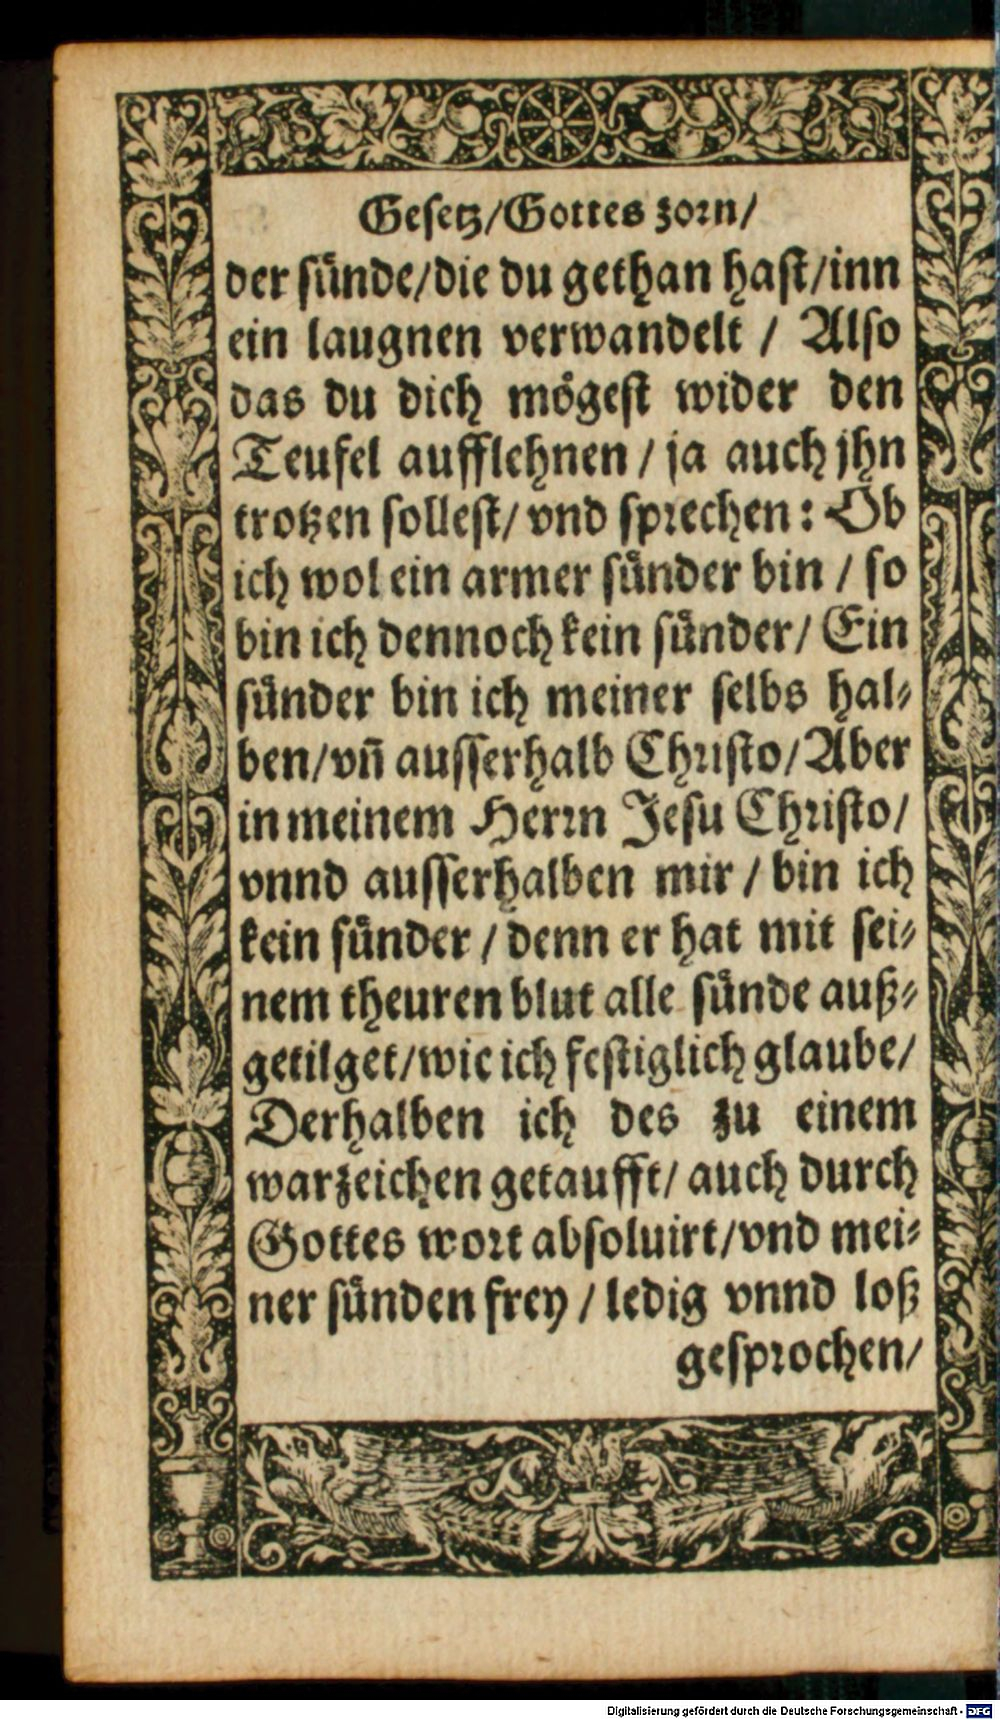 Gesetz/Gottes zorn/
der sünde/die du gethan hast/inn
ein laugnen verwandelt / Also
das du dich mögest wider den
Teufel aufflehnen / ja auch jhn
trotzen sollest/ vnd sprechen: Ob
ich wol ein armer sünder bin / so
bin ich dennoch kein sünder/ Ein
sünder bin ich meiner selbs hal⸗
ben/vn̄ ausserhalb Christo/Aber
in meinem Herrn Jesu Christo/
vnnd ausserhalben mir / bin ich
kein sünder / denn er hat mit sei⸗
nem theuren blut alle sünde auß⸗
getilget/wie ich festiglich glaube/
Derhalben ich des zu einem
warzeichen getaufft/ auch durch
Gottes wort absoluirt/vnd mei⸗
ner sünden frey / ledig vnnd loß
gesprochen/
Digitalisierung gefördert durch die Deutsche Forschungsgemeinschaft - DFG